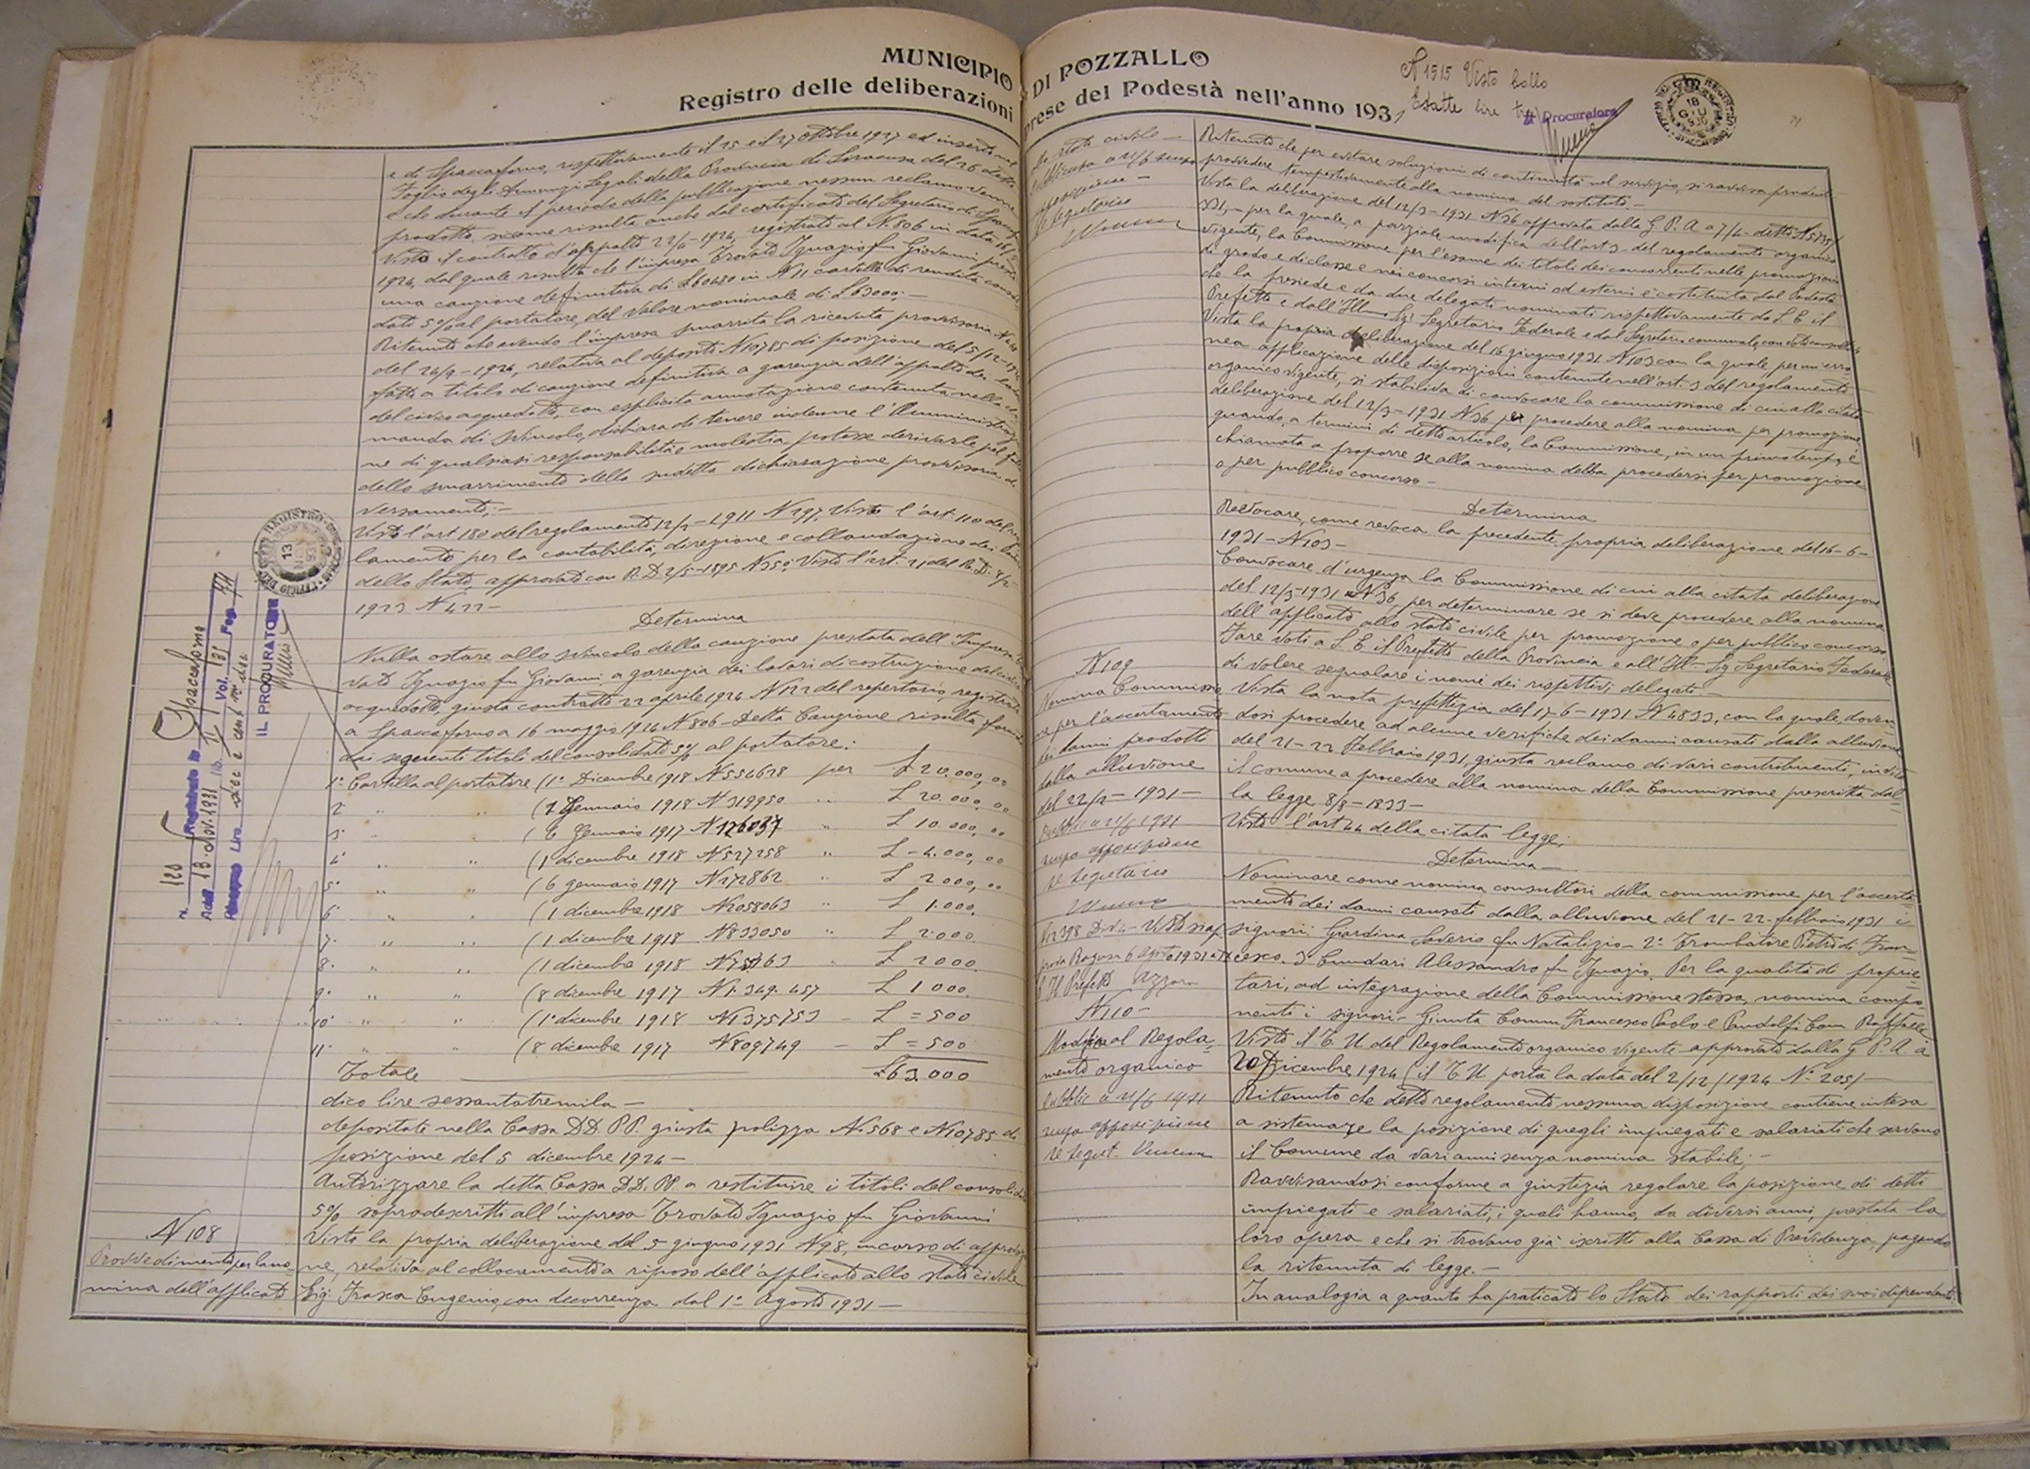 MUNICIPIO DI POZZALLO
Registro delle deliberazioni prese del Podestà nell'anno 1931
N 1515 Visto bollo
Esatte lire tre
Il Procuratore
e di Spaccaforno, rispettivamente il 25 e il 27 ottobre 1927 ed inserto nel
Foglio degli Annunzi Legali della Provincia di Siracusa del 26 detto
e che durante il periodo della pubblicazione nessun reclamo venne
prodotto, siccome risulta anche dal certificato del Segretario di
Visto il contratto d'appalto 22/4-1924, registrato al N. 806 in data 16/5
1924, dal quale risulta che l'impresa Trovato Ignazio fu Giovanni
una cauzione definitiva di £ 60480 in N 11 cartelle di rendita consoli
dato 5% al portatore, del valore nominale di £ 63000;-
Ritenuto che avendo l'impresa smarrita la ricevuta provvisoria
del 24/4-1924, relativa al deposito N 10785 di posizione del 5/12-
fatto a titolo di cauzione definitiva a garenzia dell'appalto dei
del civico acquedotto, con esplicita annotazione contenuta nella
manda di svincolo, dichiara di tenere indenne l'Amministrazio
ne di qualsiasi responsabilità e molestia potesse derivarle pel
dello smarrimento della sudetta dichiarazione provvisoria di
versamento;-
Visto l'art 180 del regolamento 12/2-1911 N 297, Visto l'art. 110 del
lamento per la contabilità, direzione e collaudazione dei
dello Stato approvato con R.D. 25/5-1895 N 350; Visto l'art. 21 del R. D. 8/2
1923 N 422-
Determina
Nulla ostare allo svincolo della cauzione prestata dell'Impresa
vato Ignazio fu Giovanni a garenzia dei lavori di costruzione del
acquedotto, giusta contratto 22 aprile 1924 N 122 del repertorio, registrato
a Spaccaforno a 16 maggio 1924 N 806- Detta Cauzione risulta
dai seguenti titoli del consolidato 5% al portatore:
1° Cartella al portatore (1° Dicembre 1918 N 554628 per £ 20.000,00
2 " " (2 Gennaio 1918 N 319950 " £ 20.000,00
3° " " (6 Gennaio 1917 N 126037 " £ 10.000,00
4° " " (1 dicembre 1918 N 527258 " £ - 4.000,00
5° " " (6 gennaio 1917 N 272862 " £ 2000,00
6° " " (1 dicembre 1918 N 2058063 " £ 1.000.
7° " " (1 dicembre 1918 N 833050 " £ 2.000.
8° " " (1 dicembre 1918 " £ 2000.
9° " " (8 dicembre 1917 N 1.349.457 £ 1000.
10° " " (1° dicembre 1918 N 1375753 - £ = 500
11. " " (8 dicembre 1917 N 809749 - £ = 500
Totale £ 63.000
dico lire sessantatremila-
depositate nella Cassa DD. PP. giusta polizza N. 568 e N 10785 di
posizione del 5 dicembre 1924-
Autorizzare la detta Cassa DD. PP. a restituire i titoli del consolidato
5% sopradescritti all'impresa Trovato Ignazio fu Giovanni
N 108
Provvedimento per la no-
mina dell'applicato
Visto la propria deliberazione del 5 giugno 1931 N 98, in corso di approvazio
ne, relativa al collocamento a riposo dell'applicato allo stato civile
Sig. Frasca Eugenio, con decorrenza dal 1° Agosto 1931-
N. 120 Registrato in Spaccaforno
Addì 13 Nov. 1931 Vol. 181 Fog.
IL PROCURATORE
stato civile-
Pubblicata a 21/6 senza
opposizione-
Il Segretario
Ritenuto che per evitare soluzioni di continuità nel servizio, si ravvisa prudente
provvedere tempestivamente alla nomina del sostituto-
Vista la deliberazione del 12/3-1931 N 36 approvata dalla G. P. A a 7/4 detto
931,- per la quale, a parziale modifica dell'art 3 del regolamento organico
vigente, la Commissione per l'esame dei titoli dei concorrenti nelle promozioni
di grado e di classe e nei concorsi interni ed esterni è costituita dal Podestà
che la presiede e da due delegati nominati rispettivamente da S. E. il
Prefetto e dall'Ill.mo Sig. Segretario Federale e dal Segretario comunale, con voto consultivo
Vista la propria deliberazione del 16 giugno 1931 N 103 con la quale per un erro
nea applicazione delle disposizioni contenute nell'art. 3 del regolamento
organico vigente, si stabiliva di convocare la commissione di cui alla citata
deliberazione del 12/3-1931 N 36 per procedere alla nomina per promozione
quando, a termini di detto articolo, la Commissione, in un primo tempo, è
chiamata a proporre se alla nomina debba procedersi per promozione
o per pubblico concorso-
Determina
Revocare, come revoca la precedente propria deliberazione del 16-6-
1931- N 103-
Convocare d'urgenza la Commissione di cui alla citata deliberazione
del 12/3-1931 N 36, per determinare se si deve procedere alla nomina
dell'applicato allo stato civile per promozione o per pubblico concorso
Fare voti a S. E il Prefetto della Provincia e all'Ill.mo Sig Segretario Federale
di volere segnalare i nomi dei rispettivi delegati-
N 109
Nomina Commissio
ne per l'accertamento
dei danni prodotti
dalla alluvione
del 22/2-1931-
Pubblic a 21/6 1931
senza opposizione
Il Segretario
Vista la nota prefettizia del 17-6-1931 N 4833, con la quale, doven-
dosi procedere ad alcune verifiche dei danni causati dalla alluvione
del 21-22 Febbraio 1931, giusta reclamo di vari contribuenti, invita
il comune a procedere alla nomina della Commissione prescritta dal-
la legge 8/8-1833-
Visto l'art 44 della citata legge;
Determina-
Nominare come nomina consultori della commissione per l'accerta
mento dei danni causati dalla alluvione del 21-22 febbraio 1931 i
signori: Giardina Saverio fu Natalizio- 2° Trombatore Pietro di Fran-
cesco. 3 Cundari Alessandro fu Ignazio. Per la qualità di proprie-
tari, ad integrazione della Commissione stessa, nomina compo-
nenti i signori- Giunta Comm. Francesco Paolo e Pandolfi Com Raffaele
Ragusa 6 Agosto 1931
Il Prefetto
N 110-
Modifica al Regola-
mento organico
Pubblic a 21/6 1931
senza opposizione
Il Segret.
Visto il T. U. del Regolamento organico vigente approvato dalla G. P. A a
20 Dicembre 1924 (il T. U porta la data del 2/12/1924 N° 205)-
Ritenuto che detto regolamento nessuna disposizione contiene intesa
a sistemare la posizione di quegli impiegati e salariati che servono
il Comune da vari anni senza nomina stabile;-
Ravvisandosi conforme a giustizia regolare la posizione di detti
impiegati e salariati, i quali hanno, da diversi anni, prestata la
loro opera e che si trovano già iscritti alla Cassa di Previdenza, pagando
la ritenuta di legge.-
In analogia a quanto ha praticato lo Stato dei rapporti dei suoi dipendenti